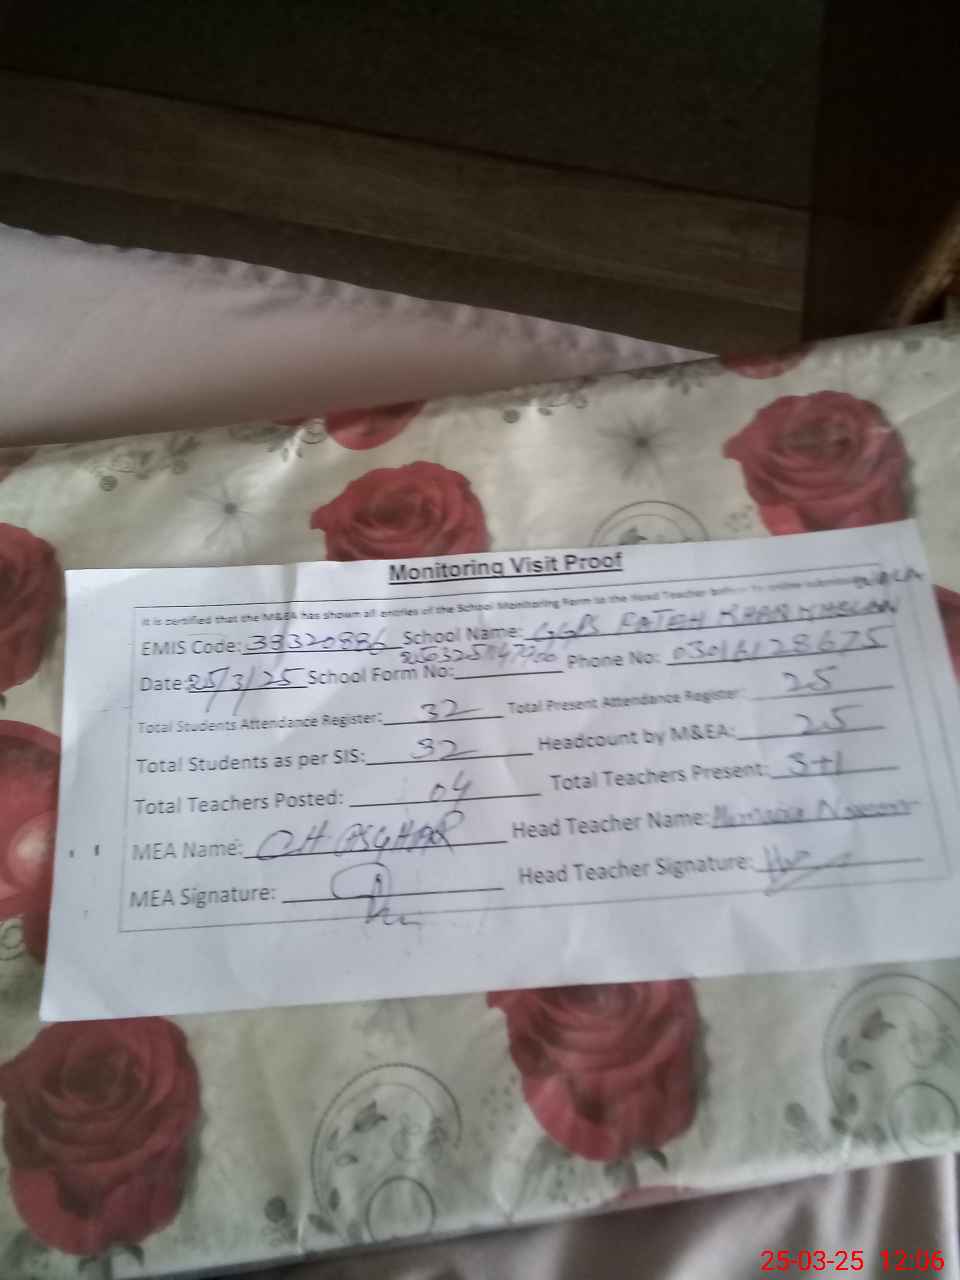 Monitoring Visit Proof
It is certified that the M&EA has shown all entries of the School Monitoring Form to the Head Teacher before its online submission
EMIS Code: 38320886 School Name: GGPS FATEH KHAN
Date: 25/3/25 School Form No: Phone No: 03016128675
Total Students Attendance Register: 32 Total Present Attendance Register: 25
Total Students as per SIS: 32 Headcount by M&EA: 25
Total Teachers Posted: 04 Total Teachers Present: 3+1
MEA Name: CH ASGHAR Head Teacher Name:
MEA Signature: Head Teacher Signature:
25-03-25 12:06